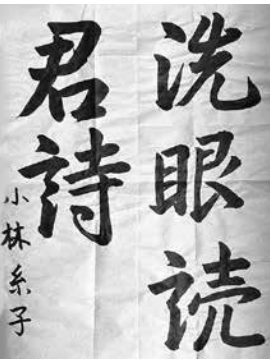 洗眼読
君詩
小林糸子